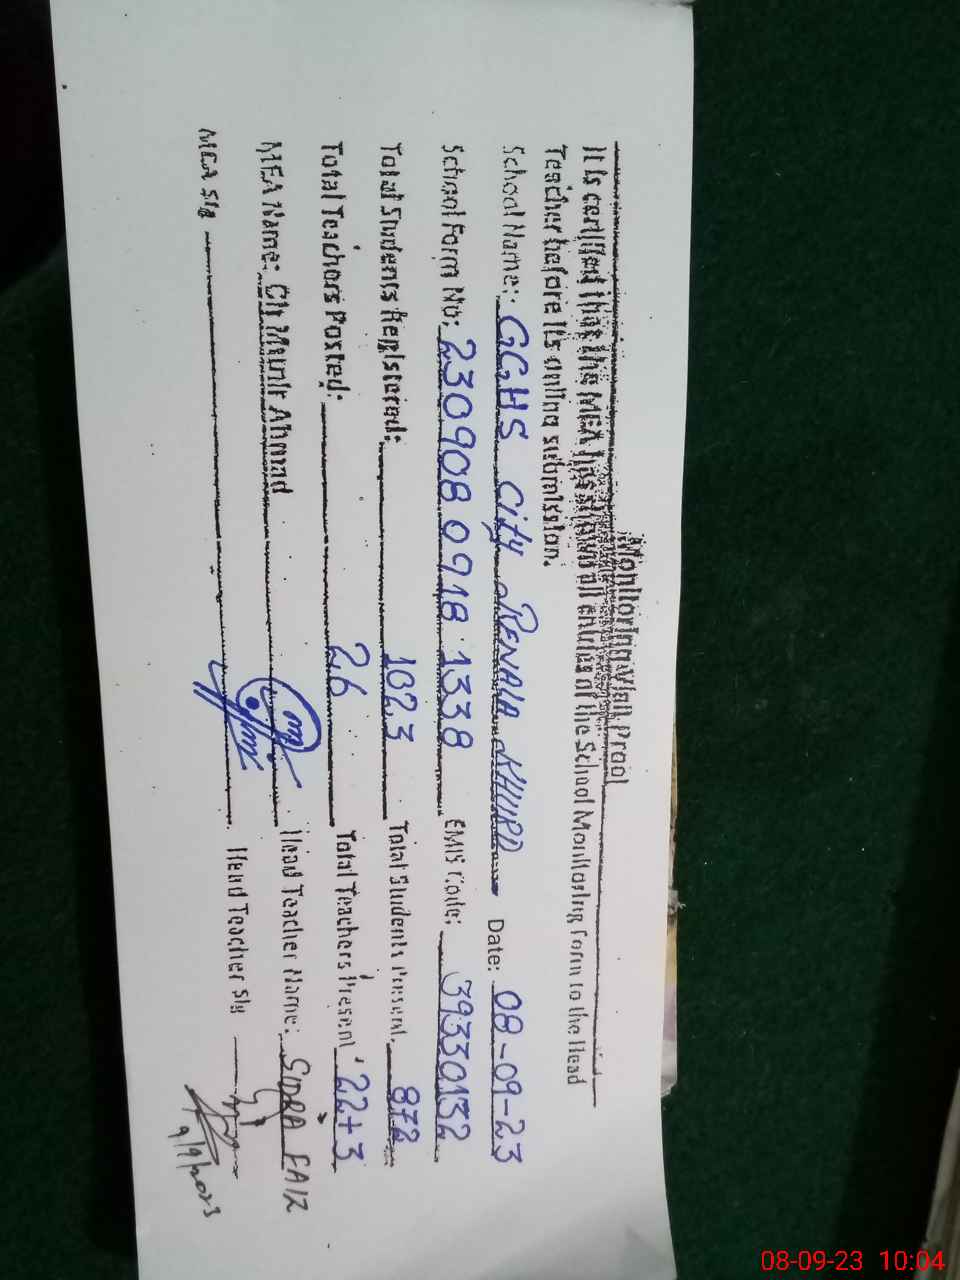 Monitoring Visit Proof
It is certified that the MEA has shown all entries of the School Monitoring Form to the Head
Teacher before it's online submission.
School Name: GGHS City RENALA KHURD Date: 08-09-23
School Form No: 230908 0918 1338 EMIS Code: 39330132
Total Students Registered: 1023 Total Students Present. 872
Total Teachers Posted: 26 Total Teachers Present 22+3
MEA Name: Ch Munir Ahmad Head Teacher Name: SIDRA FAIZ
MEA Sig Head Teacher Sig
9/9/2023
08-09-23 10:04